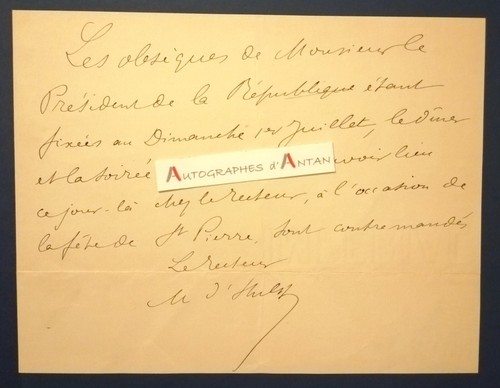 Les obsèques de Monsieur le
Président de la République étant
fixées au Dimanche 1er Juillet, le dîner
et la soirée
AUTOGRAPHES d'ANTAN
avoir lieu
ce jour-là chez le recteur, à l'occasion de
la fête de St Pierre, sont contremandés
Le recteur
M d'Hulst